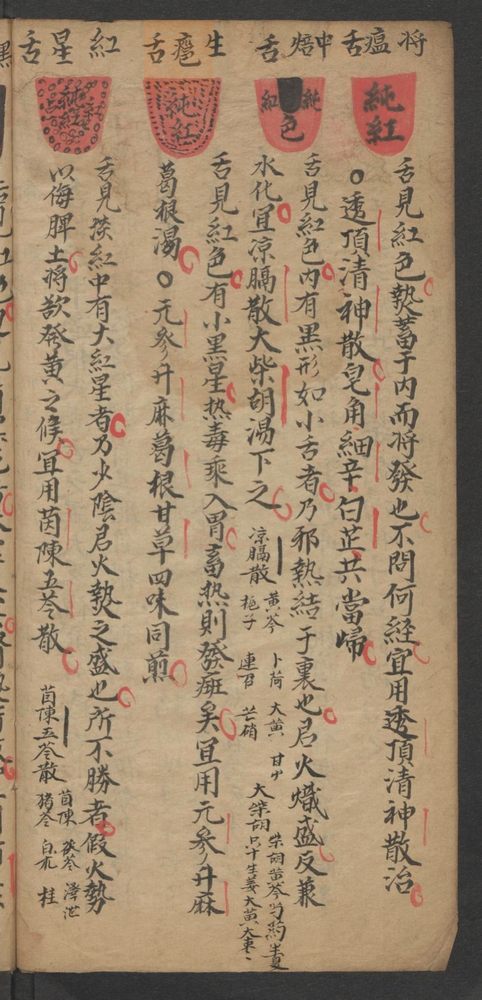 将瘟舌
中焙舌
生瘪舌
紅星舌
純紅
純紅色
純紅
純紅
舌見紅色熱蓄于内而将發也不問何經宜用透頂清神散治
○透頂清神散皂角細辛白芷共當帰
舌見紅色内有黒形如小舌者乃邪熱結于裏也君火熾盛反兼
水化宜凉膈散大柴胡湯下之
凉膈散 黄芩 卜荷 大黄 甘艸
梔子 連召 芒硝
大柴胡 柴胡 黄芩 芍药 半夏
只寸 生姜 大黄 大枣
舌見紅色有小黒星热毒乘入胃畜热則發癍矣宜用元参升麻
葛根湯○元参升麻葛根甘草四味同煎
舌見淡紅中有大紅星者乃少陰君火熱之盛也所不勝者假火勢
以侮脾土将欲發黄之候宜用茵陳五苓散
茵陳五苓散 茵陳 茯苓 澤泻
猪苓 白朮 桂